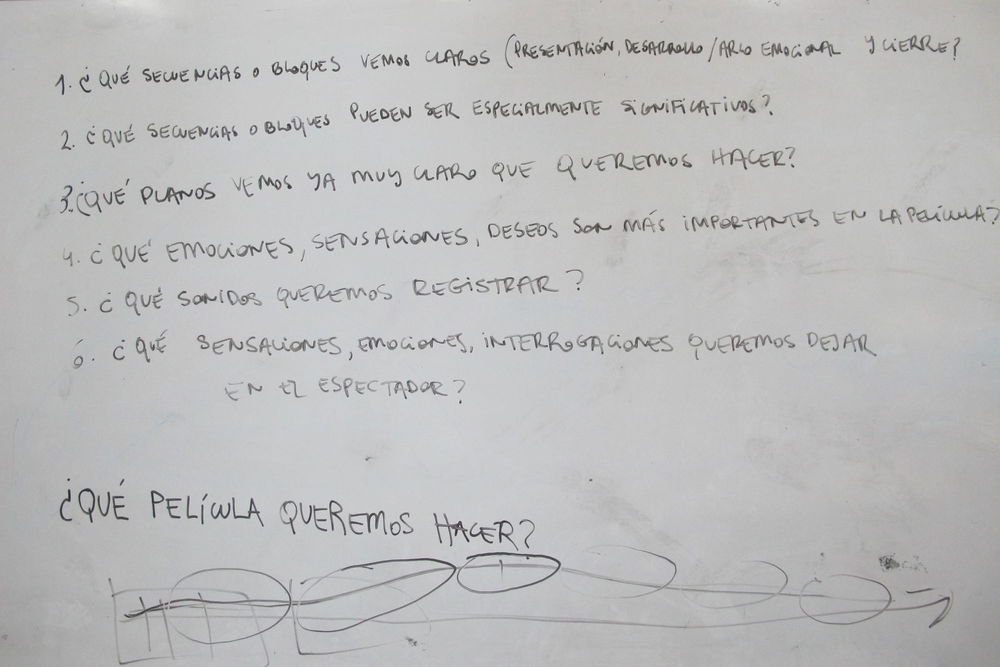 1. ¿QUÉ SECUENCIAS O BLOQUES VEMOS CLAROS (PRESENTACIÓN, DESARROLLO/ARCO EMOCIONAL Y CIERRE?
2. ¿QUÉ SECUENCIAS O BLOQUES PUEDEN SER ESPECIALMENTE SIGNIFICATIVOS?
3. ¿QUÉ PLANOS VEMOS YA MUY CLARO QUE QUEREMOS HACER?
4. ¿QUÉ EMOCIONES, SENSACIONES, DESEOS SON MÁS IMPORTANTES EN LA PELÍCULA?
5. ¿QUÉ SONIDOS QUEREMOS REGISTRAR?
6. ¿QUÉ SENSACIONES, EMOCIONES, INTERROGACIONES QUEREMOS DEJAR
EN EL ESPECTADOR?
¿QUÉ PELÍCULA QUEREMOS HACER?